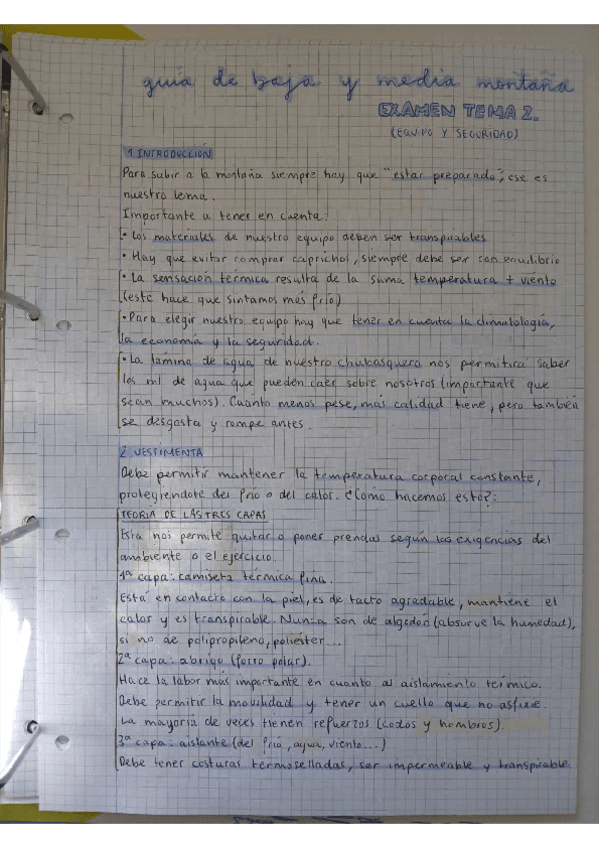 guía de baja y media montaña
EXAMEN TEMA 2.
(EQUIPO Y SEGURIDAD)
1. INTRODUCCIÓN
Para subir a la montaña siempre hay que "estar preparado", ese es
nuestro lema.
Importante a tener en cuenta:
• Los materiales de nuestro equipo deben ser transpirables
• Hay que evitar comprar caprichos, siempre debe ser con equilibrio
• La sensación térmica resulta de la suma temperatura + viento
(este hace que sintamos más frío)
• Para elegir nuestro equipo hay que tener en cuenta la climatología,
la economía y la seguridad.
• La lámina de agua de nuestro chubasquero nos permitirá saber
los ml de agua que pueden caer sobre nosotros (importante que
sean muchos). Cuanto menos pese, más calidad tiene, pero también
se desgasta y rompe antes.
2. VESTIMENTA
Debe permitir mantener la temperatura corporal constante,
protegiendote del frío o del calor. ¿Cómo hacemos esto?:
TEORÍA DE LAS TRES CAPAS
Esta nos permite quitar o poner prendas según las exigencias del
ambiente o el ejercicio.
1ª capa: camiseta térmica fina.
Está en contacto con la piel, es de tacto agradable, mantiene el
calor y es transpirable. Nunca son de algodón (absorve la humedad),
si no de polipropileno, poliéster...
2ª capa: abrigo (forro polar).
Hace la labor más importante en cuanto al aislamiento térmico.
Debe permitir la movilidad y tener un cuello que no asfixie.
La mayoría de veces tienen refuerzos (codos y hombros).
3ª capa: aislante (del frío, agua, viento...)
Debe tener costuras termoselladas, ser impermeable y transpirable